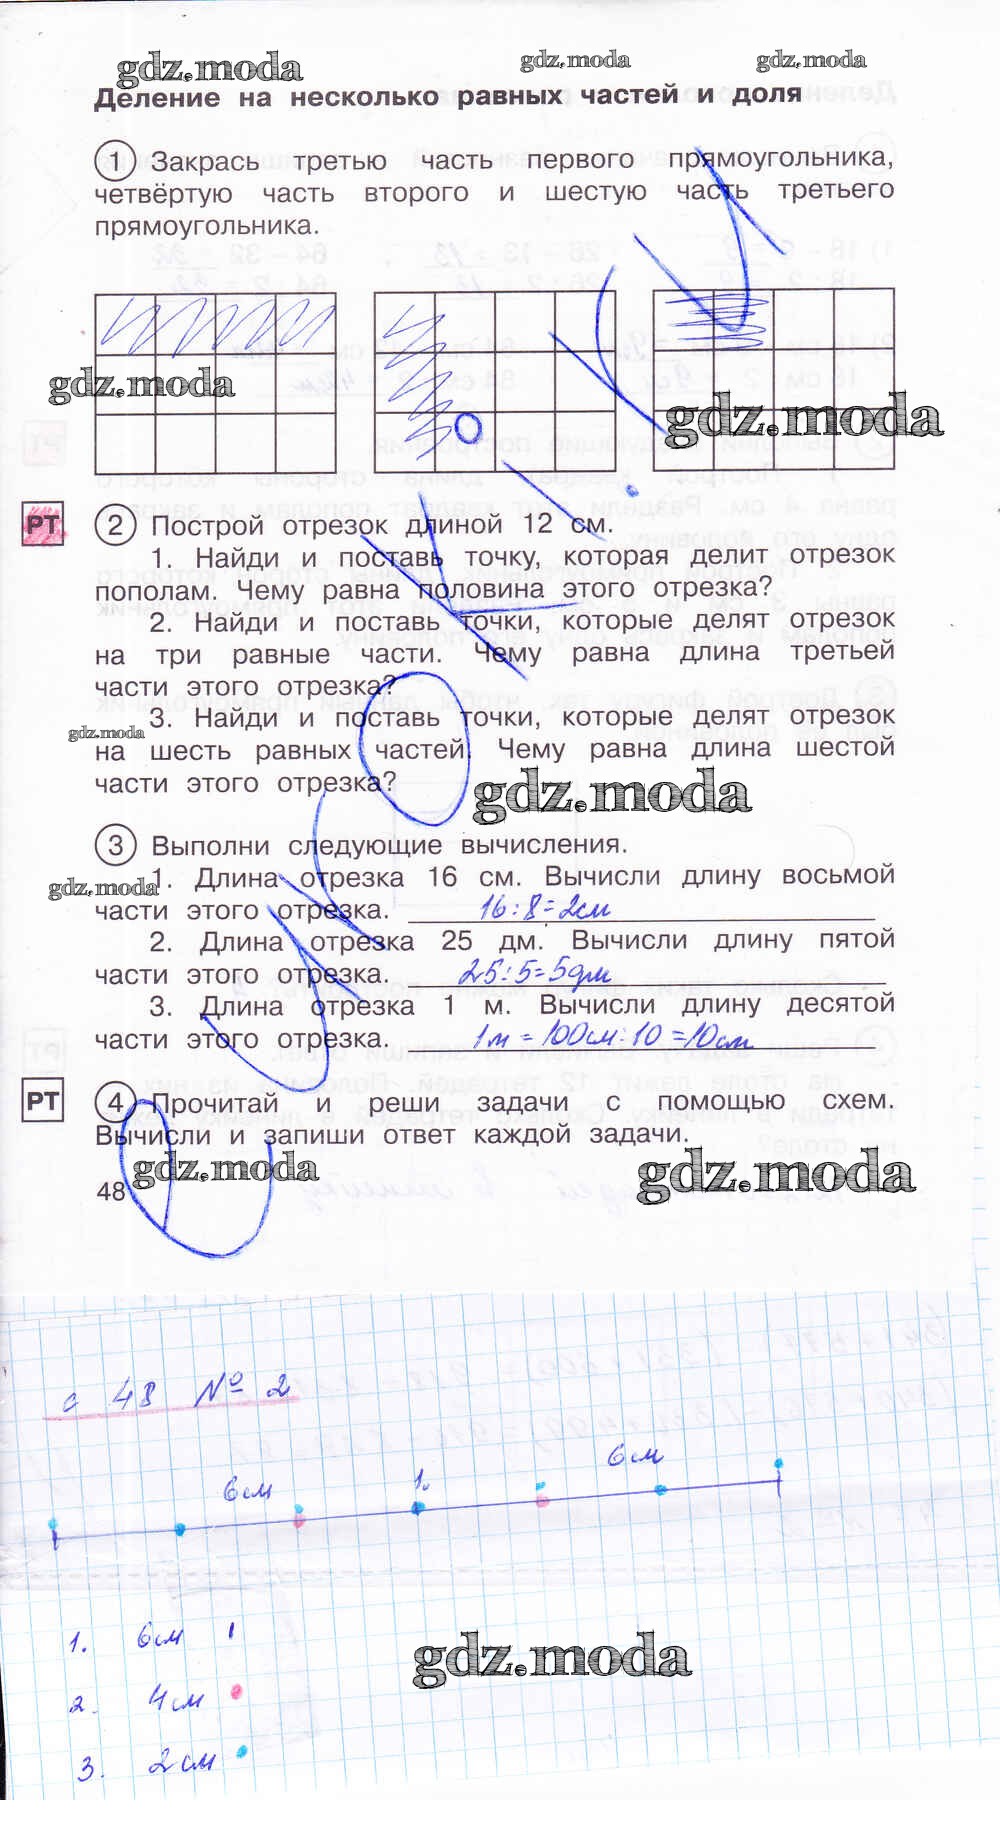 gdz.moda gdz.moda gdz.moda
Деление на несколько равных частей и доля
1 Закрась третью часть первого прямоугольника,
четвёртую часть второго и шестую часть третьего
прямоугольника.
gdz.moda
gdz.moda
РТ 2 Построй отрезок длиной 12 см.
1. Найди и поставь точку, которая делит отрезок
пополам. Чему равна половина этого отрезка?
2. Найди и поставь точки, которые делят отрезок
на три равные части. Чему равна длина третьей
части этого отрезка?
3. Найди и поставь точки, которые делят отрезок
gdz.moda
на шесть равных частей. Чему равна длина шестой
части этого отрезка?
gdz.moda
3 Выполни следующие вычисления.
1. Длина отрезка 16 см. Вычисли длину восьмой
gdz.moda
части этого отрезка. 16:8=2см
2. Длина отрезка 25 дм. Вычисли длину пятой
части этого отрезка. 25:5=5дм
3. Длина отрезка 1 м. Вычисли длину десятой
части этого отрезка. 1м = 100см:10=10см
РТ 4 Прочитай и реши задачи с помощью схем.
Вычисли и запиши ответ каждой задачи.
gdz.moda gdz.moda
48
с 48 № 2
6см 1. 6см
1. 6см
gdz.moda
2. 4см
3. 2см